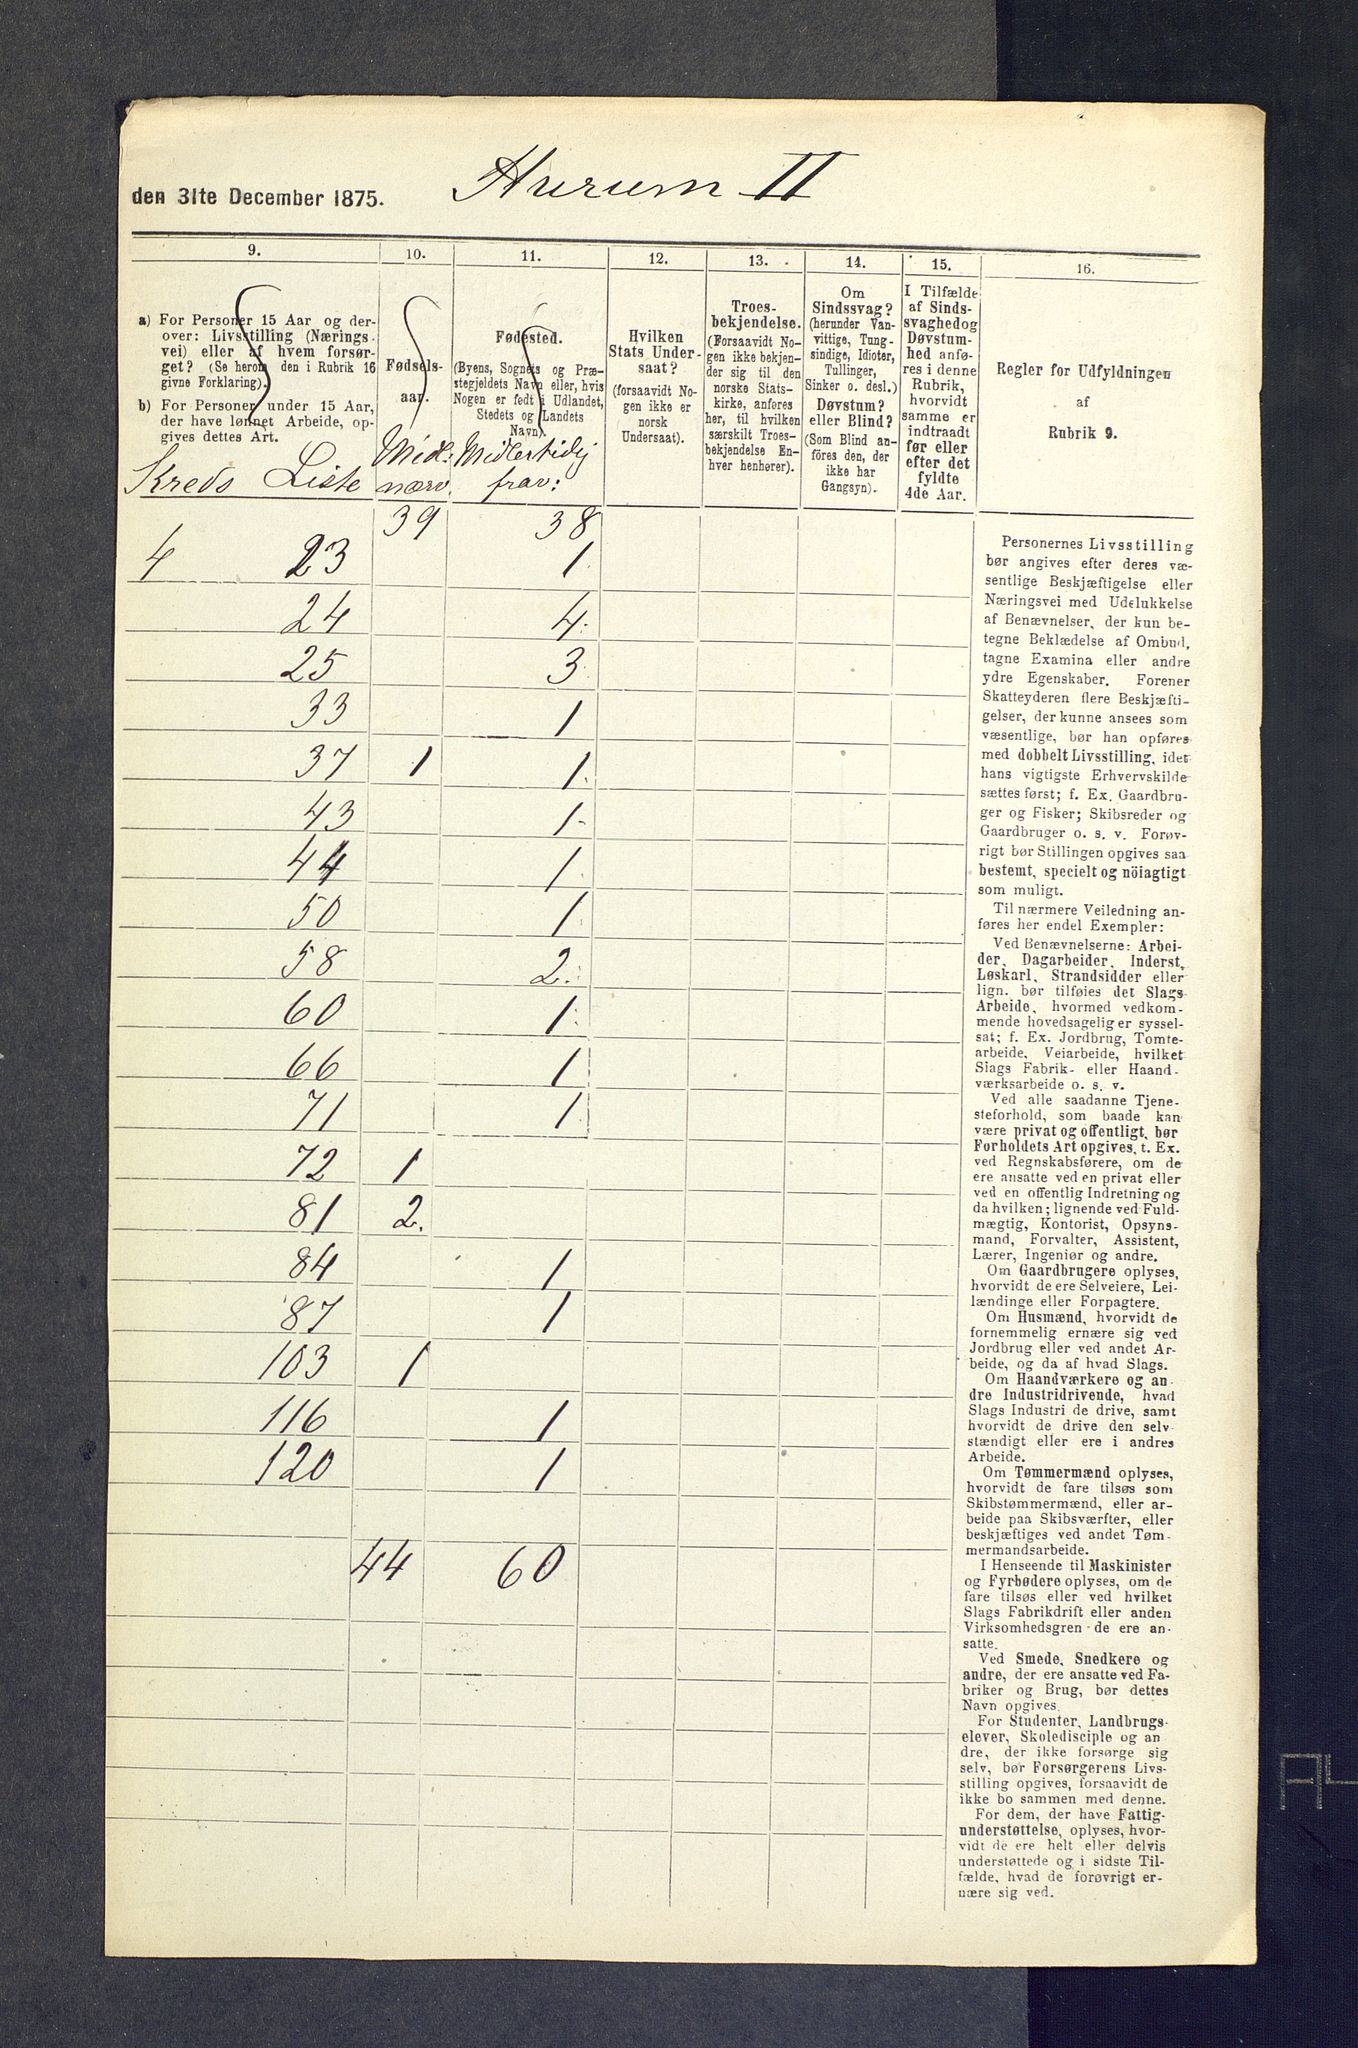 den 31te December 1875.
Hurum II
9. 10. 11. 12. 13. 14. 15. 16.
a) For Personer 15 Aar og der-
over: Livsstilling (Nærings-
vei) eller af hvem forsør-
get? (Se herom den i Rubrik 16
givne Forklaring).
b) For Personer under 15 Aar,
der have lønnet Arbeide, op-
gives dettes Art.
Fødsels-
aar.
Fødested.
(Byens, Sognets og Præ-
stegjeldets Navn eller, hvis
Nogen er født i Udlandet,
Stedets og Landets
Navn).
Hvilken
Stats Under-
saat?
(forsaavidt No-
gen ikke er
norsk
Undersaat).
Troes-
bekjendelse.
(Forsaavidt No-
gen ikke bekjen-
der sig til den
norske Stats-
kirke, anføres
her, til hvilken
særskilt Troes-
bekjendelse En-
hver henhører).
Om
Sindssvag?
(herunder Van-
vittige, Tung-
sindige, Idioter,
Tullinger,
Sinker o. desl.)
Døvstum?
eller Blind?
(Som Blind an-
føres den, der
ikke har
Gangsyn).
I Tilfælde
af Sinds-
svaghed og
Døvstum-
hed anfø-
res i denne
Rubrik,
hvorvidt
samme er
indtraadt
før eller
efter det
fyldte
4de Aar.
Regler for Udfyldningen
af
Rubrik 9.
Kreds Liste Midl: nærv. Midlertidig frav:
39 38
4 23 1
24 4
25 3
33 1
37 1 1
43 1
44 1
50 1
58 2
60 1
66 1
71 1
72 1
81 2
84 1
87 1
103 1
116 1
120 1
44 60
Personernes Livsstilling
bør angives efter deres væ-
sentlige Beskjæftigelse eller
Næringsvei med Udelukkelse
af Benævnelser, der kun be-
tegne Beklædelse af Ombud,
tagne Examina eller andre
ydre Egenskaber. Forener
Skatteyderen flere Beskjæfti-
gelser, der kunne ansees som
væsentlige, bør han opføres
med dobbelt Livsstilling, idet
hans vigtigste Erhvervskilde
sættes først; f. Ex. Gaardbru-
ger og Fisker; Skibsreder og
Gaardbruger o. s. v. Forøv-
rigt bør Stillingen opgives saa
bestemt, specielt og nöiagtigt
som muligt.
Til nærmere Veiledning an-
føres her endel Exempler:
Ved Benævnelserne: Arbei-
der, Dagarbeider, Inderst,
Løskarl, Strandsidder eller
lign. bør tilføies det Slags
Arbeide, hvormed vedkom-
mende hovedsagelig er syssel-
sat; f. Ex. Jordbrug, Tomte-
arbeide, Veiarbeide, hvilket
Slags Fabrik- eller Haand-
værksarbeide o. s. v.
Ved alle saadanne Tjene-
steforhold, som baade kan
være privat og offentligt, bør
Forholdets Art opgives, t. Ex.
ved Regnskabsførere, om de
ere ansatte ved en privat eller
ved en offentlig Indretning og
da hvilken; lignende ved Fuld-
mægtig, Kontorist, Opsyns-
mand, Forvalter, Assistent,
Lærer, Ingeniør og andre.
Om Gaardbrugere oplyses,
hvorvidt de ere Selveiere, Lei-
lændinge eller Forpagtere.
Om Husmænd, hvorvidt de
fornemmelig ernære sig ved
Jordbrug eller ved andet Ar-
beide, og da af hvad Slags.
Om Haandværkere og an-
dre Industridrivende, hvad
Slags Industri de drive, samt
hvorvidt de drive den selv-
stændigt eller ere i andres
Arbeide.
Om Tømmermænd oplyses,
hvorvidt de fare tilsøs som
Skibstømmermænd, eller ar-
beide paa Skibsværfter, eller
beskjæftiges ved andet Tøm-
mermandsarbeide.
I Henseende til Maskinister
og Fyrbødere oplyses, om de
fare tilsøs eller ved hvilket
Slags Fabrikdrift eller anden
Virksomhedsgren de ere an-
satte.
Ved Smede, Snedkere og
andre, der ere ansatte ved Fa-
briker og Brug, bør dettes
Navn opgives.
For Studenter, Landbrugs-
elever, Skoledisciple og an
dre, der ikke forsørge sig
selv, bør Forsørgerens Livs-
stilling opgives, forsaavidt de
ikke bo sammen med denne.
For dem, der have Fattig-
understøttelse, oplyses, hvor-
vidt de ere helt eller delvis
understøttede og i sidste Til-
fælde, hvad de forøvrigt er-
nære sig ved.
A4